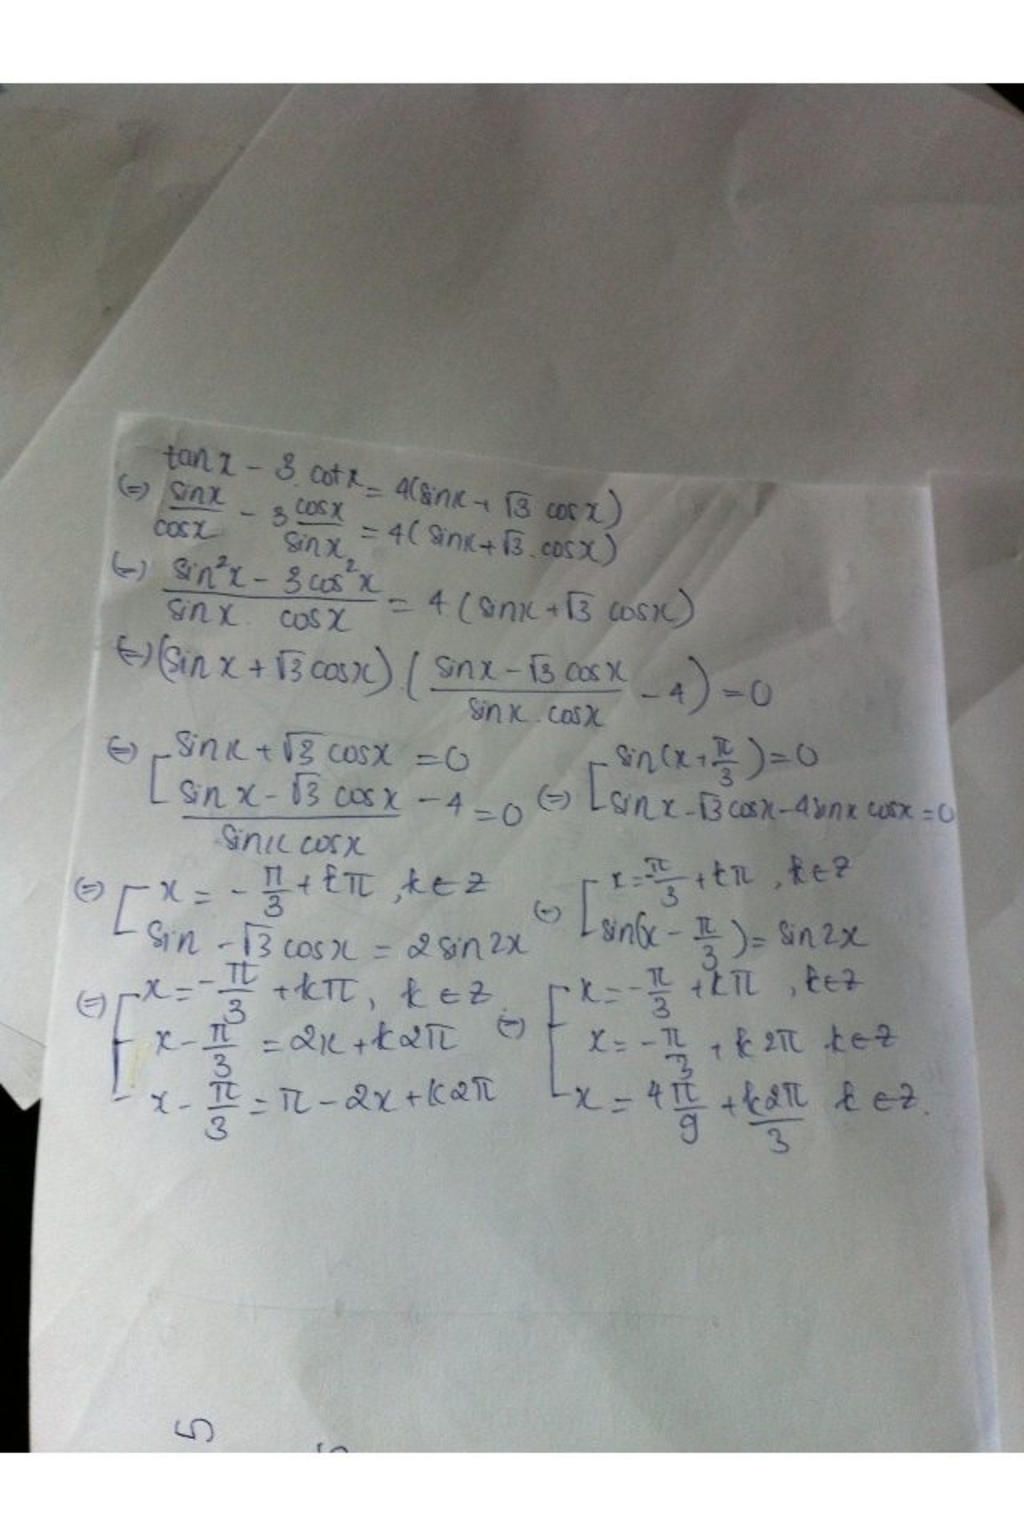 tan x - 3. cot x = 4(sin x + √3 cos x)
(=) sin x / cos x - 3 cos x / sin x = 4( sin x + √3. cos x)
(=) sin²x - 3cos²x / sin x cos x = 4 (sin x + √3 cos x)
(=) (sin x + √3 cos x) . ( sin x - √3 cos x / sin x . cos x - 4 ) = 0
(=) [ sin x + √3 cos x = 0
sin x - √3 cos x / sin x cos x - 4 = 0
(=) [ sin(x + π/3) = 0
sin x - √3 cos x - 4 sin x cos x = 0
(=) [ x = - π/3 + kπ , k ∈ Z
sin - √3 cos x = 2 sin 2x
(=) [ x = -π/3 + kπ , k ∈ Z
sin(x - π/3) = sin 2x
(=) [ x = - π/3 + kπ , k ∈ Z.
x - π/3 = 2x + k2π
x - π/3 = π - 2x + k2π
(=) [ x = - π/3 + kπ , k ∈ Z
x = - π/3 + k2π k ∈ Z
x = 4π/9 + k2π/3 k ∈ Z.
5